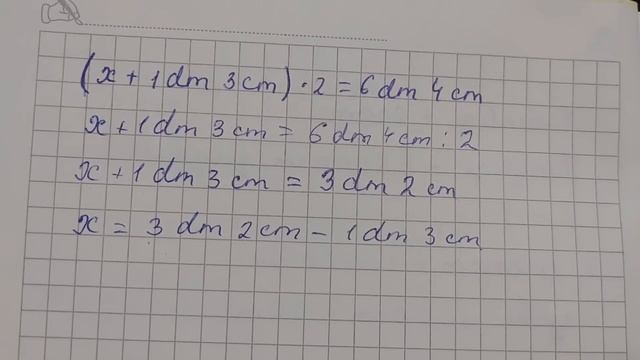 (x + 1 dm 3 cm) · 2 = 6 dm 4 cm
x + 1 dm 3 cm = 6 dm 4 cm : 2
x + 1 dm 3 cm = 3 dm 2 cm
x = 3 dm 2 cm - 1 dm 3 cm